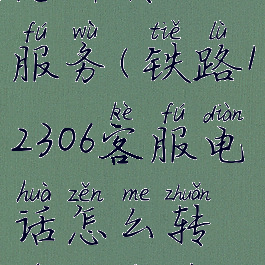 fú wù tiě lù
服务(铁路1
kè fú diàn
2306客服电
huà zěn me zhuǎn
话怎么转